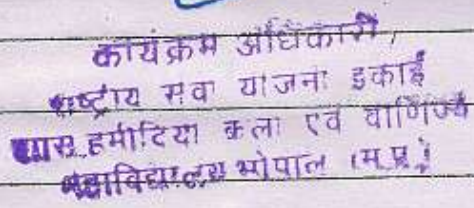 कार्यक्रम अधिकारी,
राष्ट्रीय सेवा योजना इकाई
शास. हमीदिया कला एवं वाणिज्य
महाविद्यालय भोपाल (म.प्र.)